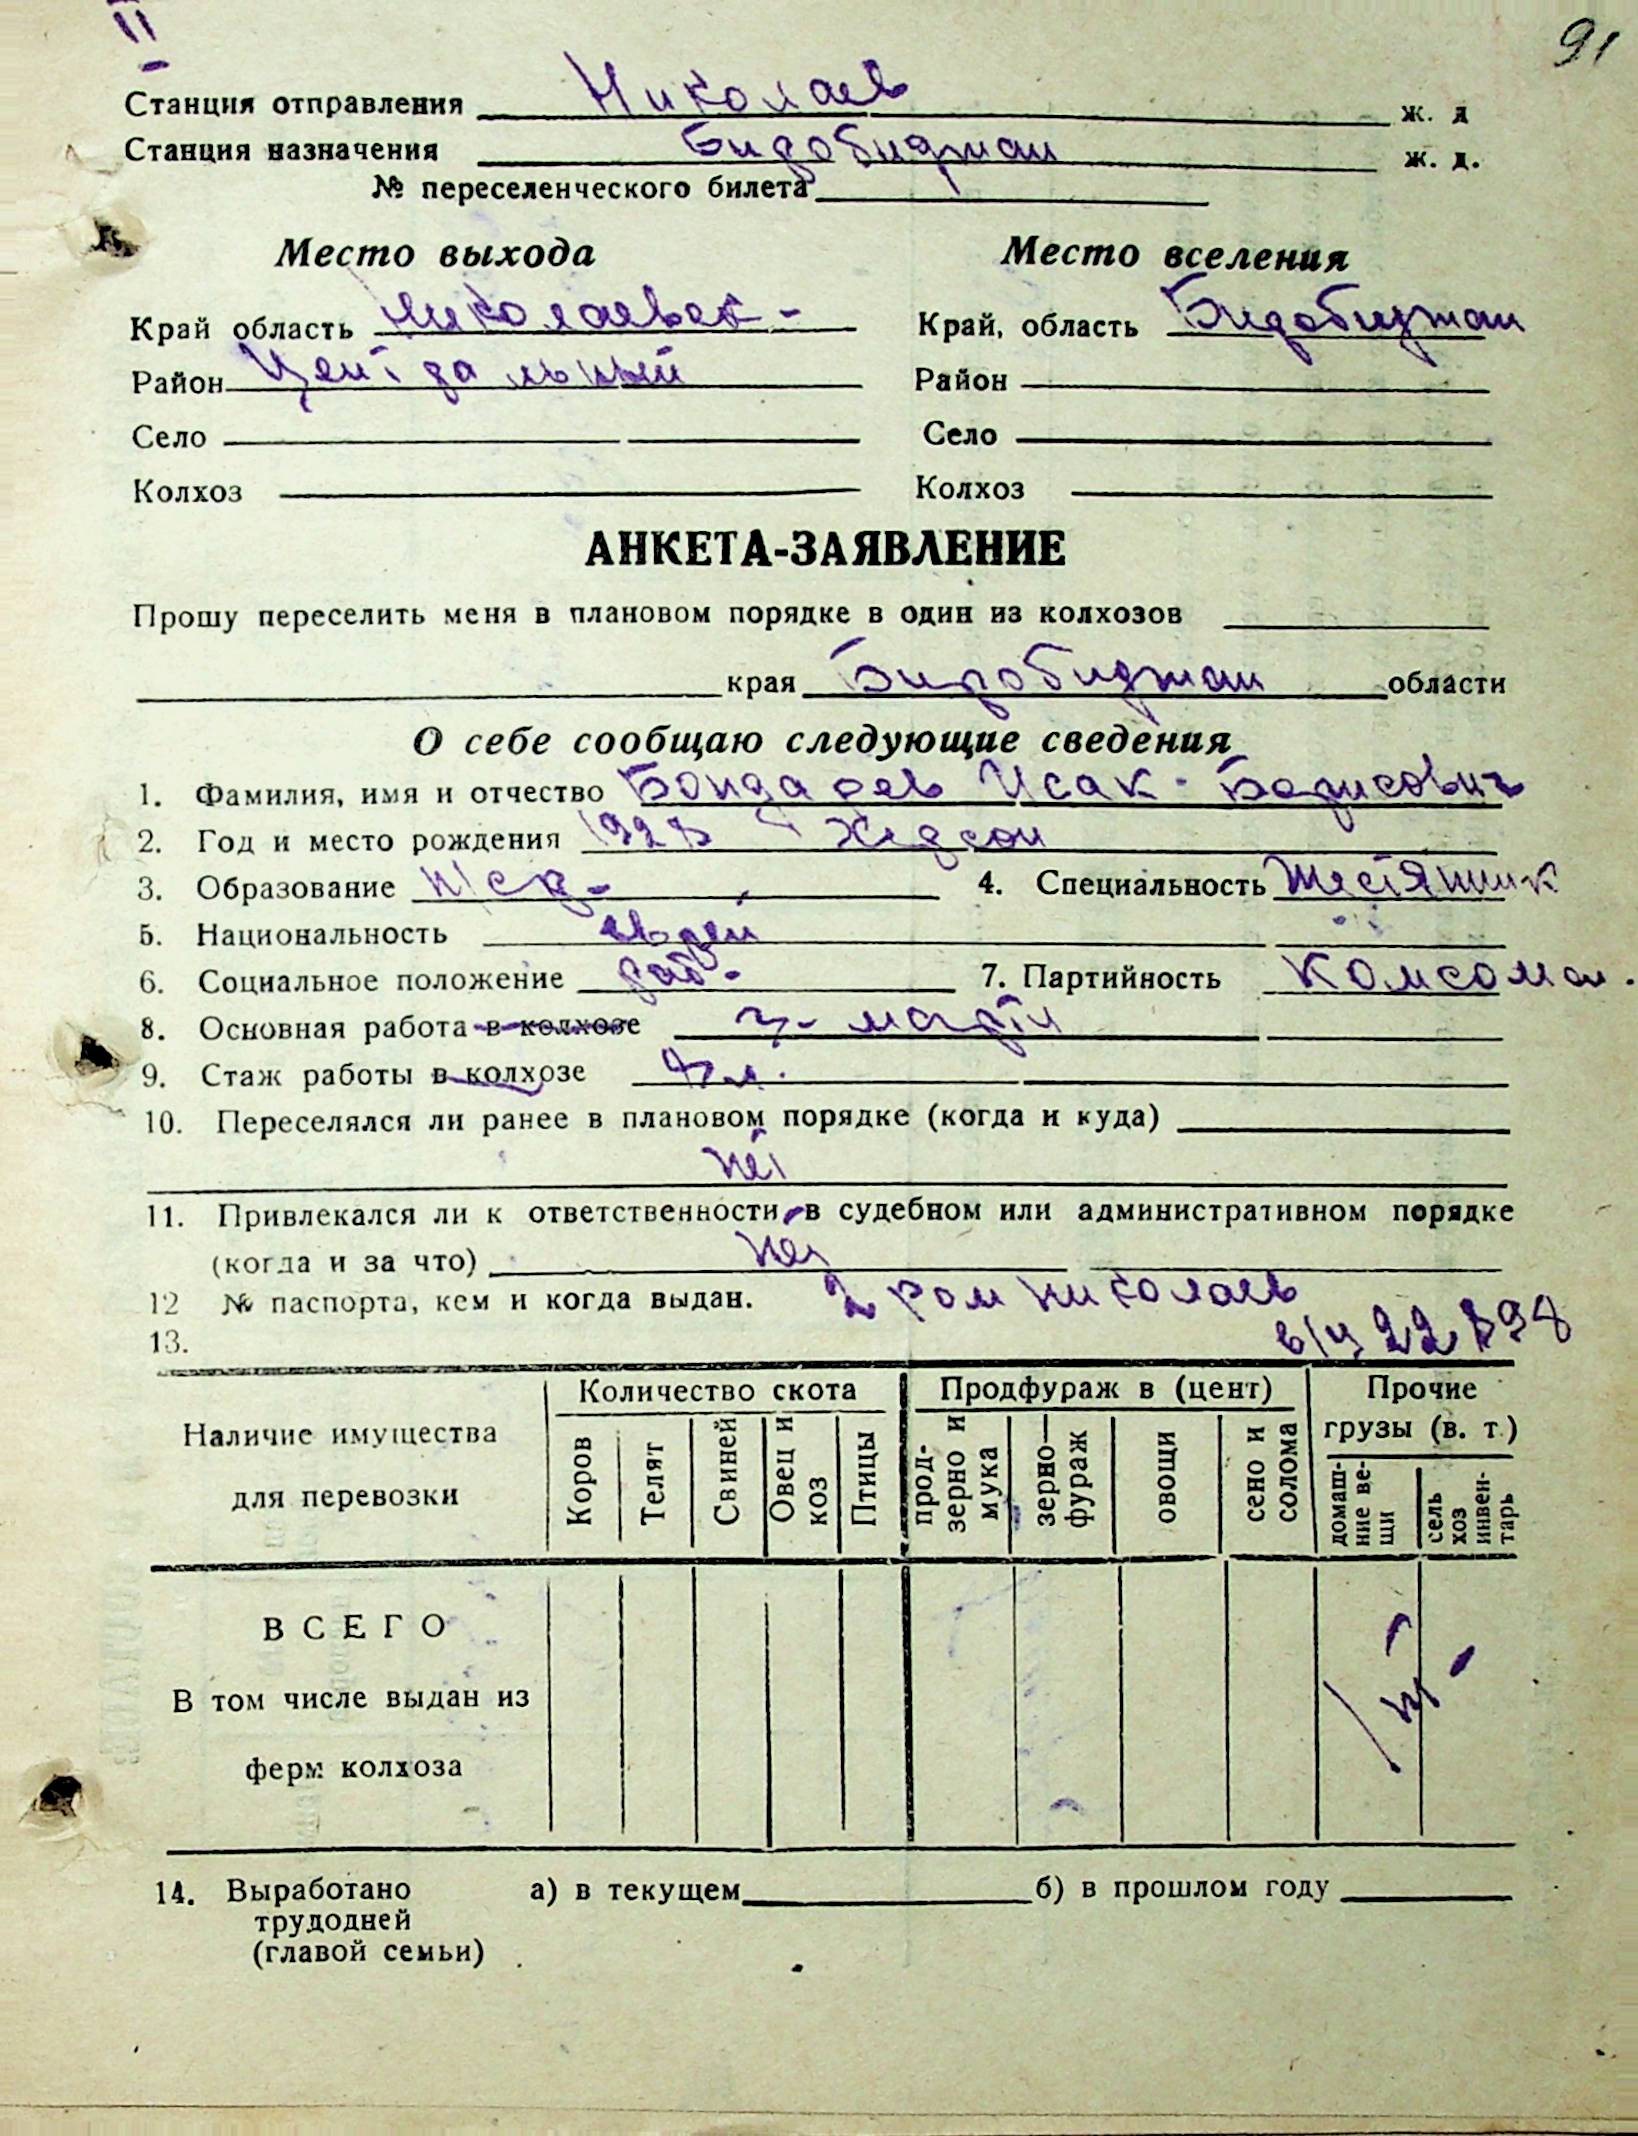 II
91
Станция отправления Николаев ж. д
Станция назначения Биробиджан ж. д.
№ переселенческого билета
Место выхода Место вселения
Край область Николаевск- Край, область Биробиджан
Район Центральный Район
Село Село
Колхоз Колхоз
АНКЕТА-ЗАЯВЛЕНИЕ
Прошу переселить меня в плановом порядке в один из колхозов
края Биробиджан области
О себе сообщаю следующие сведения
1. Фамилия, имя и отчество Бондарев Исак Борисович
2. Год и место рождения Херсон
3. Образование н/ср- 4. Специальность Жестянщик
5. Национальность еврей
6. Социальное положение раб- 7. Партийность Комсомол.
8. Основная работа в колхозе з-марти
9. Стаж работы в колхозе л.
10. Переселялся ли ранее в плановом порядке (когда и куда)
нет
11. Привлекался ли к ответственности в судебном или административном порядке
(когда и за что) нет
12 № паспорта, кем и когда выдан. 2 ром Николаев
13.
Наличие имущества для перевозки
Количество скота
Продфураж в (цент)
Прочие грузы (в. т.)
Коров
Телят
Свиней
Овец и коз
Птицы
прод-зерно и мука
зерно—фураж
овощи
сено и солома
домаш-ние ве-щи
сель хоз инвен-тарь
ВСЕГО
В том числе выдан из
ферм колхоза
14. Выработано а) в текущем б) в прошлом году
трудодней
(главой семьи)